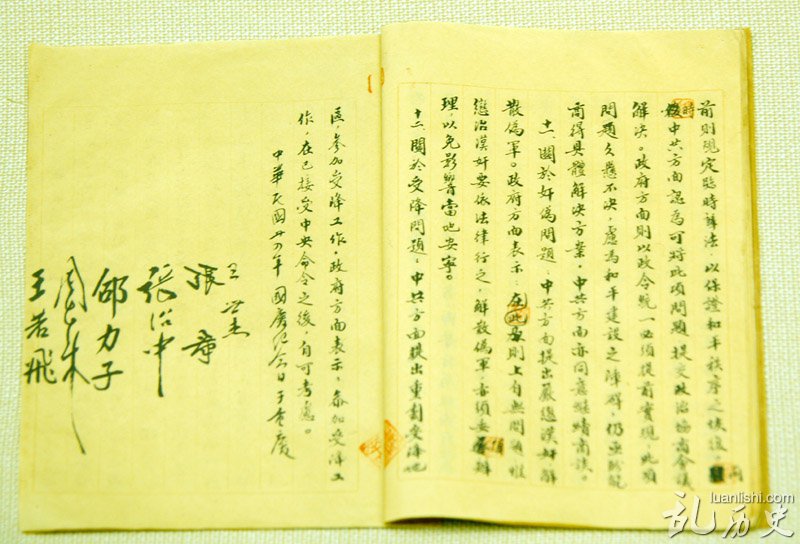 前則規定臨時辦法,以保證和平秩序之恢復。
時中共方面認為可將此項問題提交政治協商會議
解決。政府方面則以政令統一必須提前實現,此項
問題久懸不決,慮為和平建設之障碍,仍亟盼能
商得具體解決方案。中共方面亦同意繼續商談。
十一、關於奸偽問題:中共方面提出嚴懲漢奸,解
散偽軍。政府方面表示:在此原則上自無問題,惟
懲治漢奸要依法律行之,解散偽軍,亦須妥 辦
理,以免影響當地安寧。
十二、關於受降問題:中共方面提出重劃受降地
區,參加受降工作。政府方面表示:參加受降工
作,在已接受中央命令之後,自可考慮。
中華民國卅四年國慶紀念日于重慶
王世杰
張羣
張治中
邵力子
周恩來
王若飛
luanlishi.com
乱历史